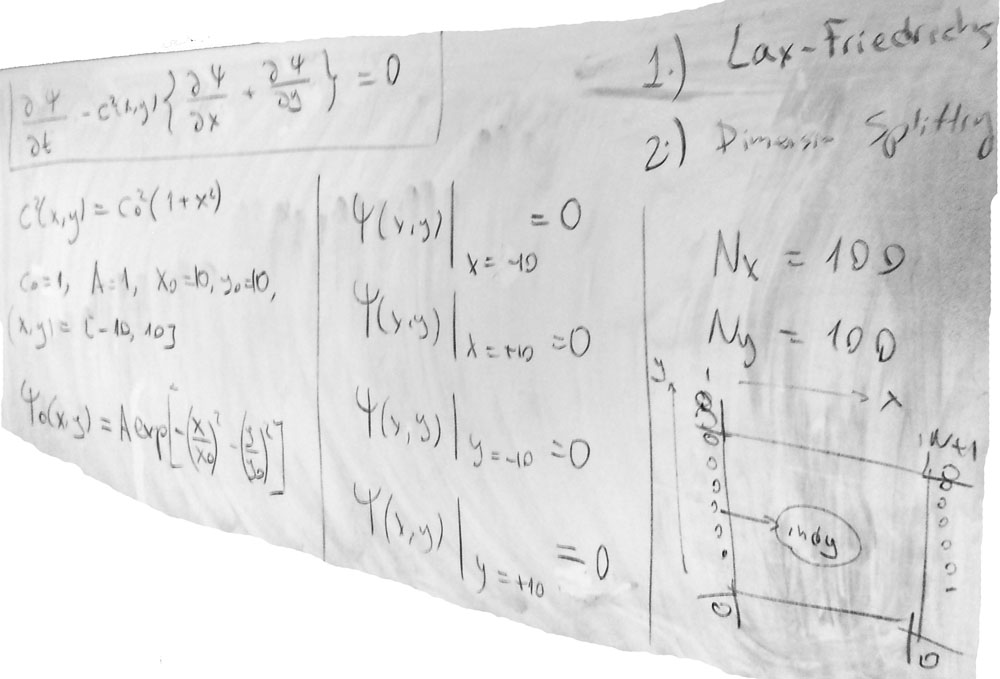 ∂Ψ/∂t - c²(x,y) { ∂Ψ/∂x + ∂Ψ/∂y } = 0
c²(x,y) = c₀²(1+x²)
c₀=1, A=1, x₀=10, y₀=10,
(x,y) = [-10, 10]
Ψ₀(x,y) = A exp[-(x/x₀)² - (y/y₀)²]
Ψ(x,y)| x=-10 = 0
Ψ(x,y)| x=+10 = 0
Ψ(x,y)| y=-10 = 0
Ψ(x,y)| y=+10 = 0
1.) Lax-Friedrichs
2.) Dimension Splitting
Nx = 100
Ny = 100
y
x
N+1
indy
0
0